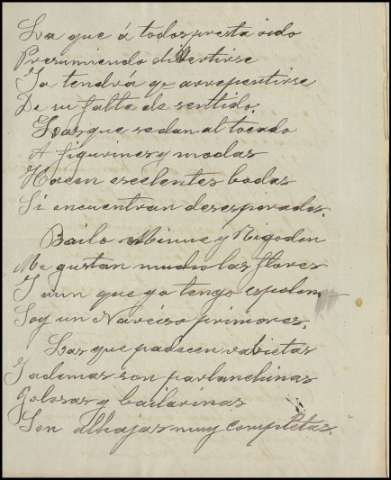 La que á todos presta oido
Presumiendo divertirse
Ya tendrá qe arrepentirse
De su falta de sentido.
Las que se dan al tocado
A figurines y modas
Hacen escelentes bodas
Si encuentran desesperados.
Bailo Minue y Rigodon
Me gustan mucho las flores
Y aun que yo tengo espolon
Soy un Narciso primores.
Las que padecen rabietas
Y ademas son parlanchinas
Golosas y bailarinas
Son alhajas muy completas.